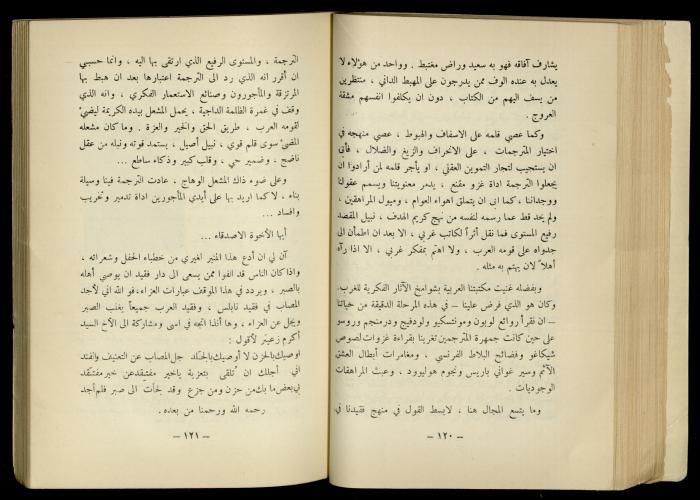 يشارف آفاقه فهو به سعيد وراض مغتبط . وواحد من هؤلاء لا
يعدل به عنده الوف ممن يدرجون على المهبط الداني ، منتظرين
من يسف اليهم من الكتاب ، دون ان يكلفوا انفسهم مشقة
العروج .
وكما عصي قلمه على الاسفاف والهبوط ، عصي منهجه في
اختيار المترجمات ، على الانحراف والزيغ والضلال ، فأبى
ان يستجيب لتجار التموين العقلي ، او يأجر قلمه لمن أرادوا ان
يجعلوا الترجمة اداة غزو مقنع ، يدمر معنويتنا ويسمم عقولنا
ووجداننا ، كما ابى ان يتملق اهواء العوام ، وميول المراهقين ،
ولم يحد قط عما رسمه لنفسه من نهج كريم الهدف ، نبيل المقصد
رفيع المستوى فما نقل أثراً لكاتب غربي ، الا بعد ان اطمأن الى
جدواه على قومه العرب ، ولا اهتم بمفكر غربي ، الا اذا رآه
أهلاً لان يهتم به مثله .
وبفضله غنيت مكتبتنا العربية بشوامخ الآثار الفكرية للغرب.
وكان هو الذي فرض علينا – في هذه المرحلة الدقيقة من حياتنا
– ان نقرأ روائع لوبون ومونتسكيو ولودفيج ودرمنجم وروسو
على حين كانت جمهرة المترجمين تغرينا بقراءة غزوات لصوص
شيكاغو وفضائح البلاط الفرنسي ، ومغامرات أبطال العشق
الآثم وسير غواني باريس ونجوم هوليوود ، وعبث المراهقات
الوجوديات .
وما يتسع المجال هنا ، لابسط القول في منهج فقيدنا في
– ١٢٠ –
الترجمة ، والمستوى الرفيع الذي ارتقى بها اليه ، وانما حسبي
ان أقرر انه الذي رد الى الترجمة اعتبارها بعد ان هبط بها
المرتزقة والمأجورون وصنائع الاستعمار الفكري ، وانه الذي
وقف في غمرة الظلمة الداجية ، يحمل المشعل بيده الكريمة ليضيء
لقومه العرب ، طريق الحق والخير والعزة . وما كان مشعله
المضئ سوى قلم قوي ، نبيل أصيل ، يستمد قوته ونبله من عقل
ناضج ، وضمير حي ، وقلب كبير وذكاء ساطع ...
وعلى ضوء ذاك المشعل الوهاج ، عادت الترجمة فينا وسيلة
بناء ، لا كما اريد بها على أيدي المأجورين اداة تدمير وتخريب
وافساد ...
أيها الأخوة الاصدقاء ...
آن لي ان أدع هذا المنبر لغيري من خطباء الحفل وشعرائه ،
واذا كان الناس قد الفوا ممن يسعى الى دار فقيد ان يوصي أهله
بالصبر ، ويردد في هذا الموقف عبارات العزاء، فو الله اني لأجد
المصاب في فقيد نابلس ، وفقيد العرب جميعاً يغلب الصبر
ويجل عن العزاء ، وها أنذا اتجه في اسى ومشاركة الى الأخ السيد
أكرم زعيتر لأقول :
اوصيك بالحزن لا أوصيك بالجَلد جل المصاب عن التعنيف والفند
اني أجلك ان تُلقى بتعزية ياخير مفتقدعن خير مفتقد
بي بعض ما بك من حزن ومن جزع وقد لجأتُ الى صبر فلم أجد
رحمه الله ورحمنا من بعده .
– ١٢١ –